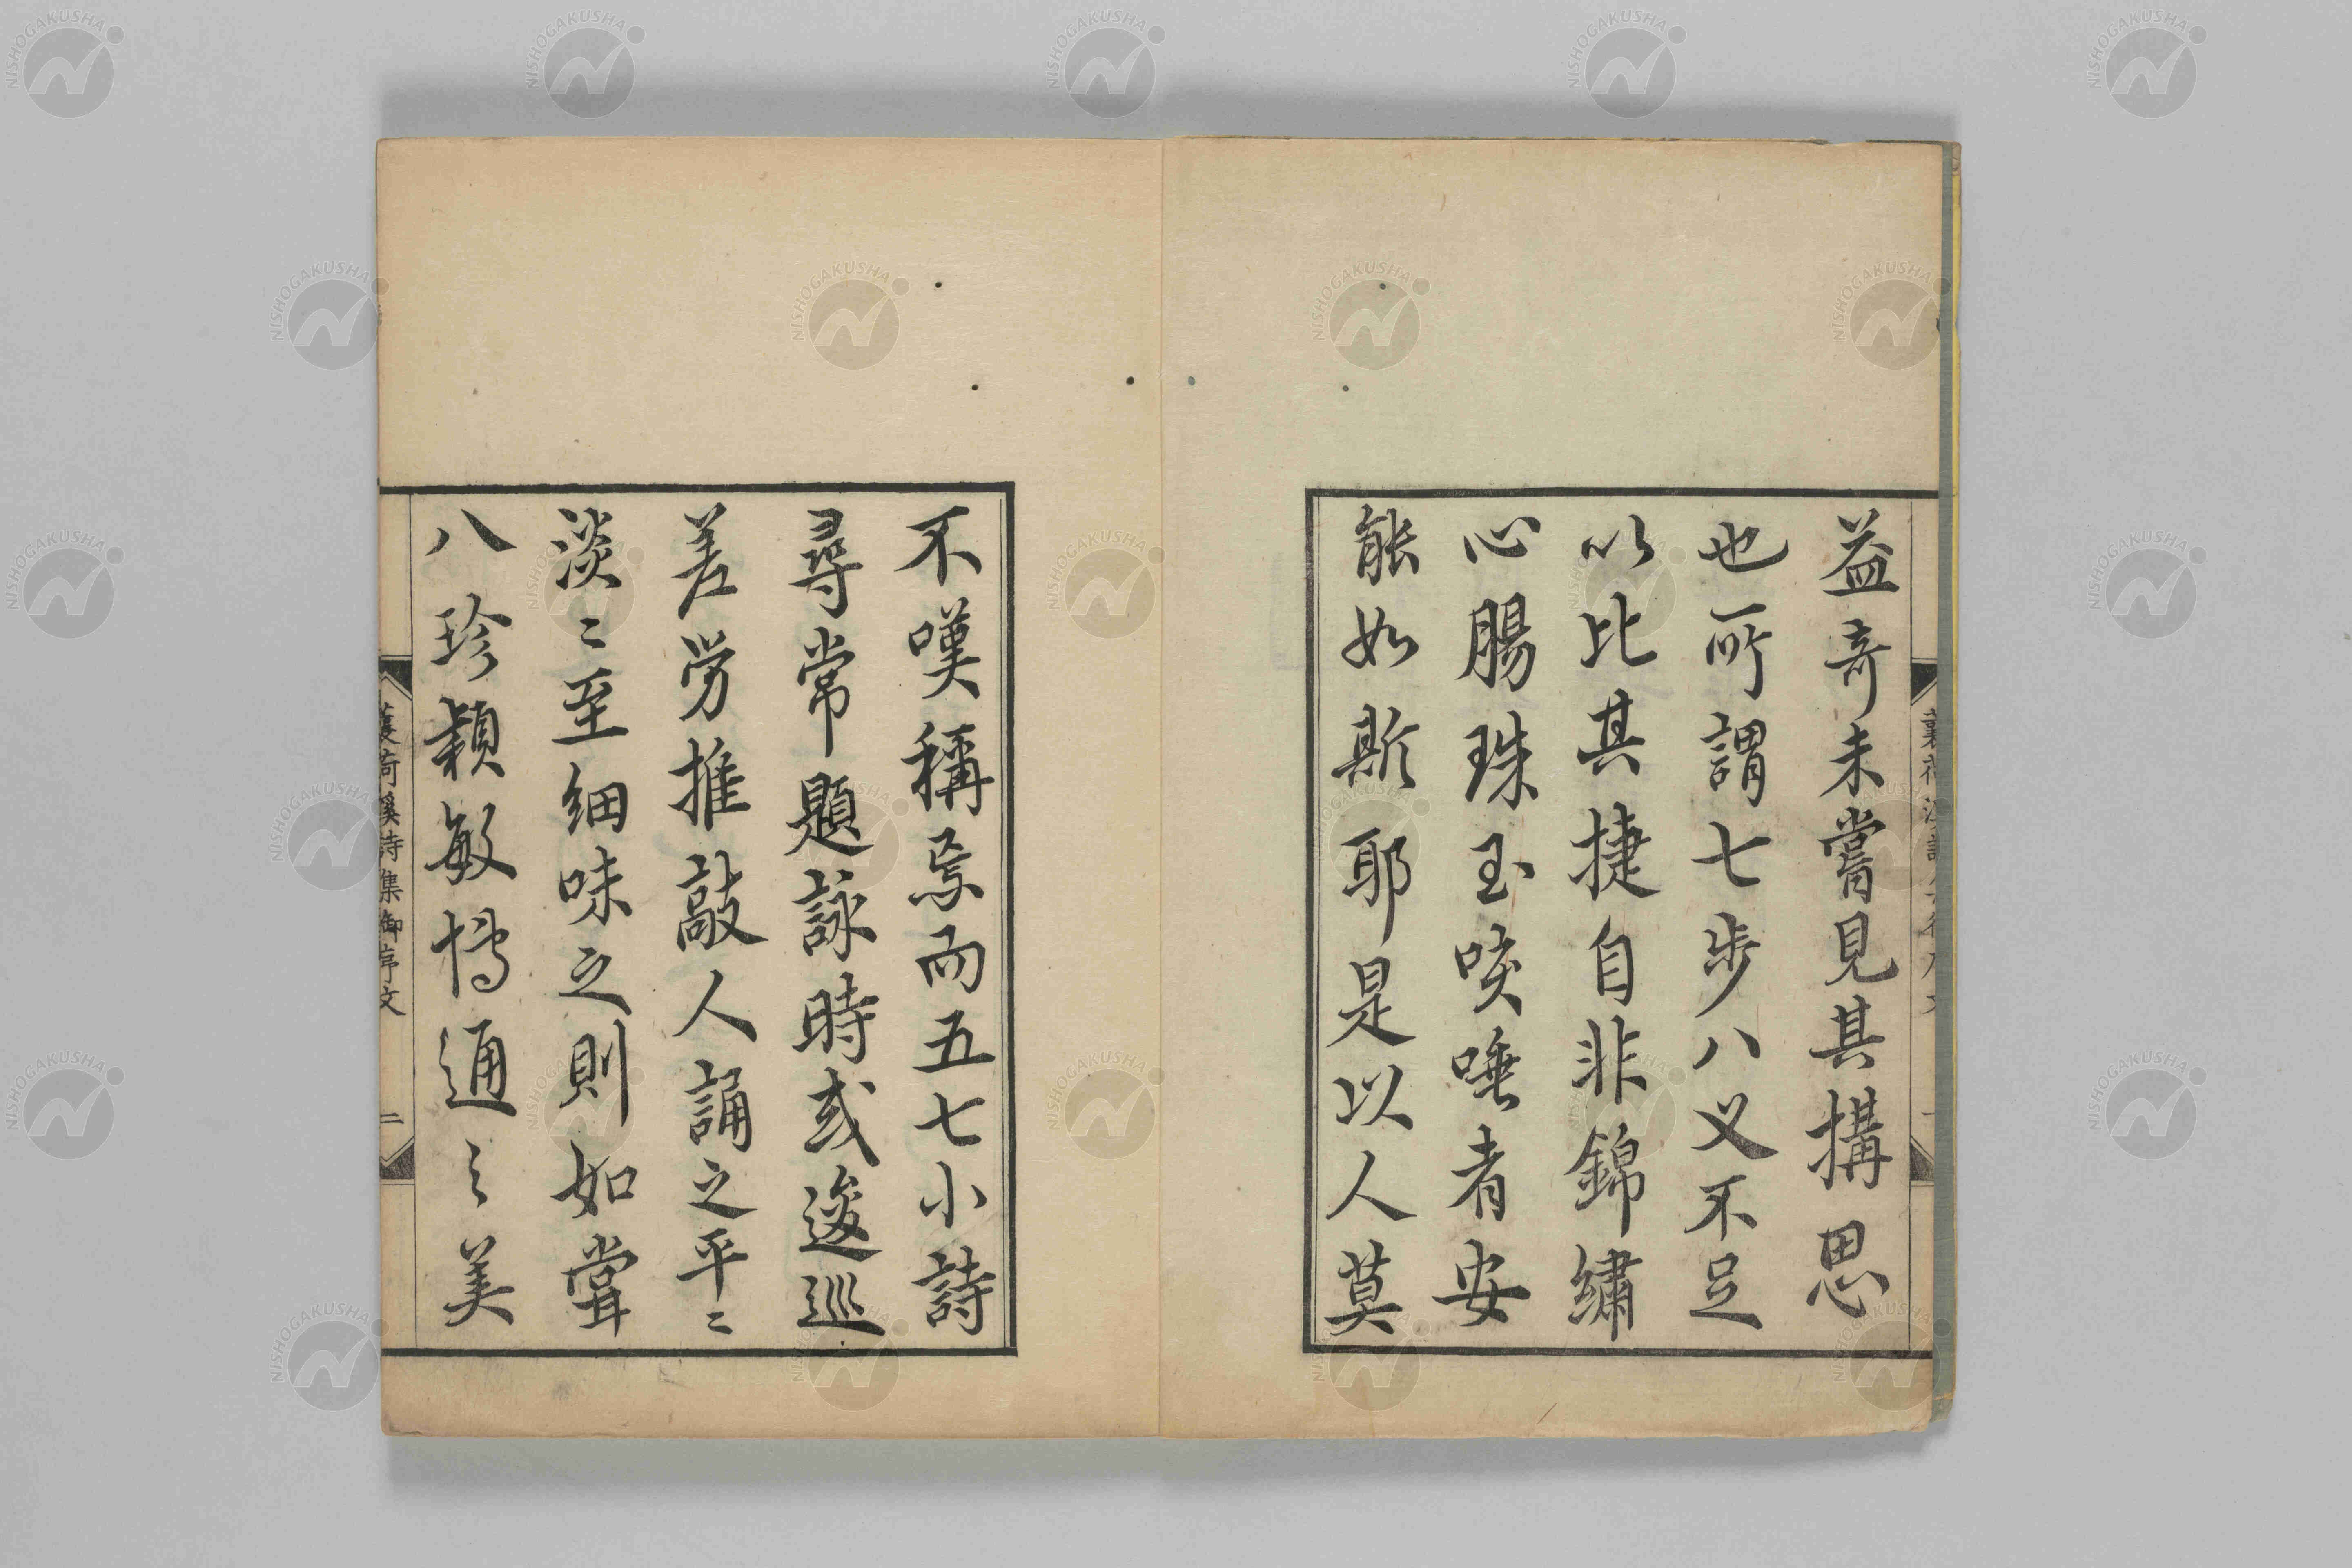 益奇未嘗見其搆思
也所謂七步八义不足
以比其捷自非錦繡
心腸珠玉咳唾者安
能如斯耶是以人莫
不嘆稱焉而五七小詩
尋常題詠時或逡巡
差労推敲人誦之平〻
淡〻至細味之則如甞
八珍穎敏博通之美
詩集御序文
二
NISHOGAKUSHA